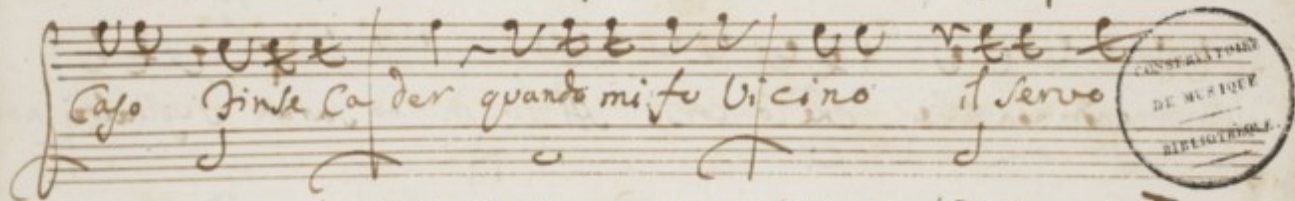 Caso Finse Ca der quando mi fu Vi cino il servo
CONSERVATOIRE
DE MUSIQUE
BIBLIOTHÈQUE.